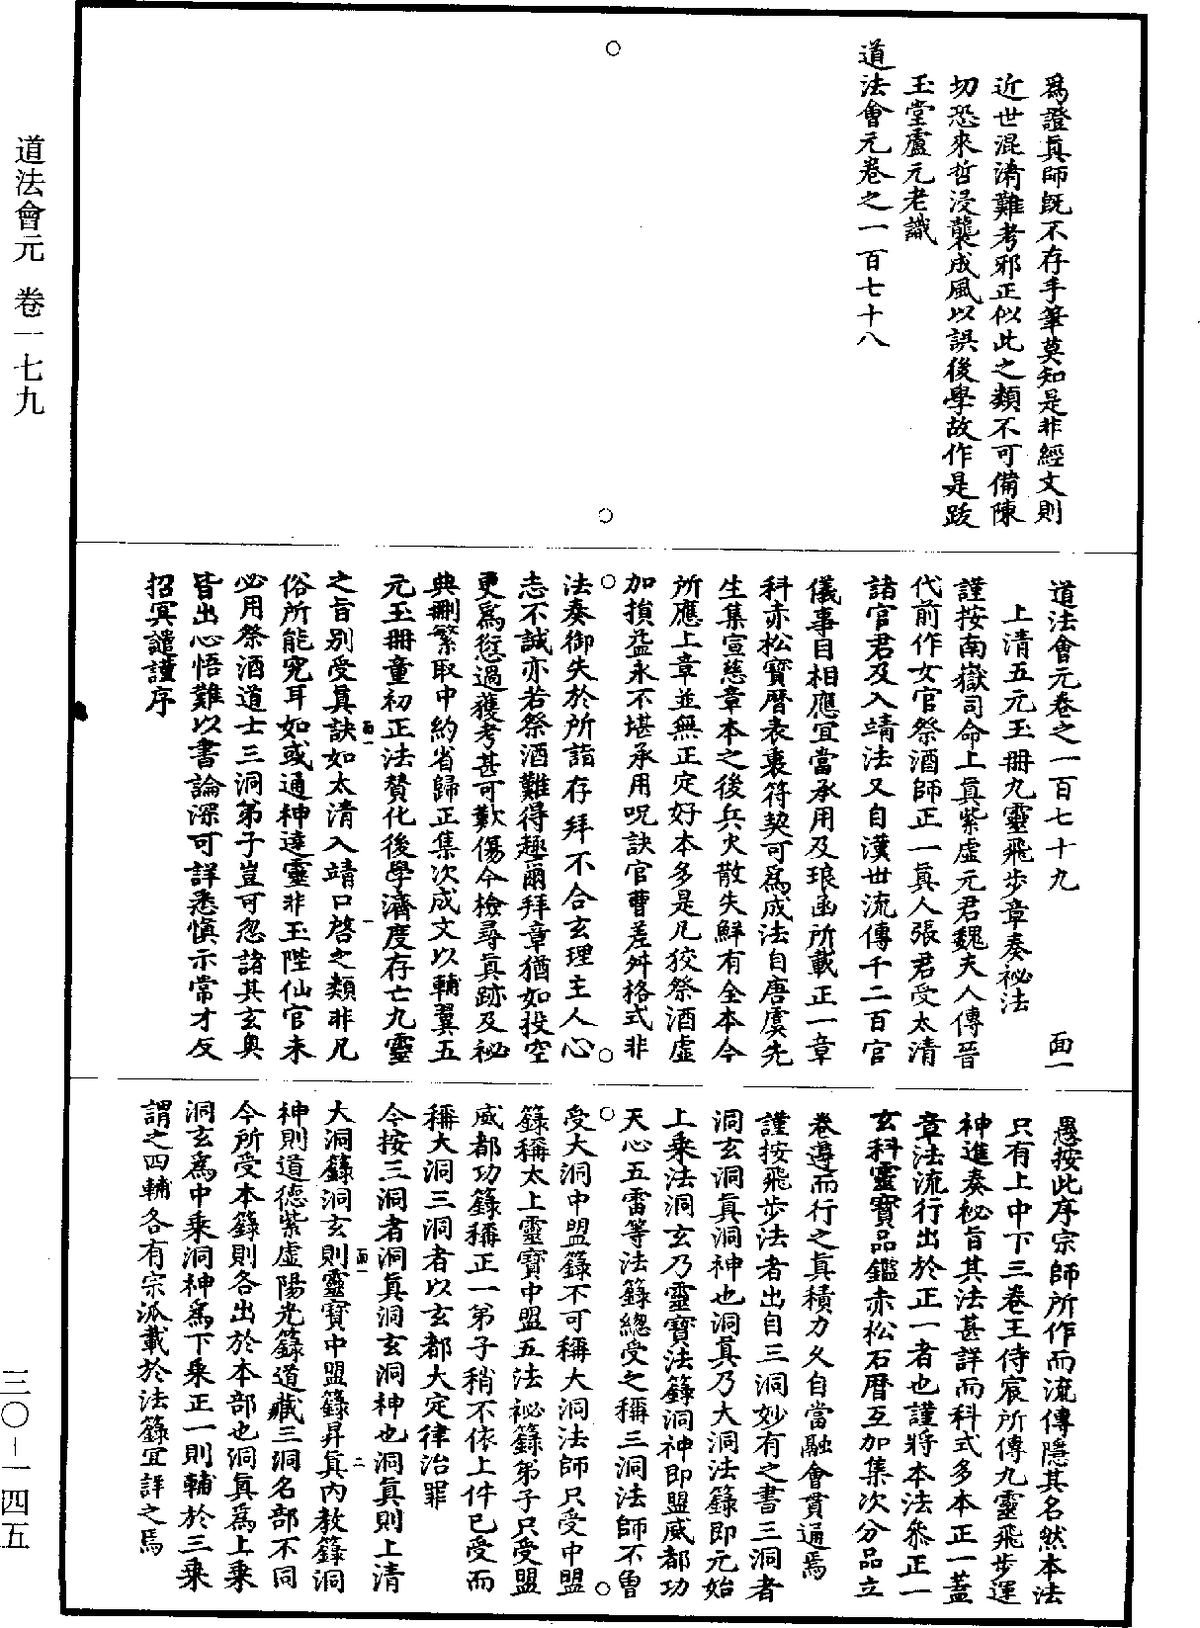 道法會元　卷一七九
三〇－一四五
爲證眞師旣不存手筆莫知是非經文則
近世混淆難考邪正似此之類不可備陳
切恐來哲浸襲成風以誤後學故作是跋
玉堂盧元老識
道法會元卷之一百七十八
道法會元卷之一百七十九　面一
上清五元玉冊九靈飛步章奏祕法
謹按南嶽司命上眞紫虛元君魏夫人傳晉
代前作女官祭酒師正一眞人張君受太清
諸官君及入靖法又自漢世流傳千二百官
儀事目相應宜當承用及琅函所載正一章
科赤松寶曆表裏符契可爲成法自唐虞先
生集宣慈章本之後兵火散失鮮有全本今
所應上章並無正定好本多是凡狡祭酒虛
加損益永不堪承用呪訣官曹差舛格式非
法奏御失於所詣存拜不合玄理主人心
志不誠亦若祭酒難得趣爾拜章猶如投空
更爲愆過獲考甚可歎傷今檢尋眞跡及祕
典刪繁取中約省歸正集次成文以輔翼五
元玉冊童初正法贊化後學濟度存亡九靈
面一　一
之旨別受眞訣如太清入靖口啓之類非凡
俗所能究耳如或通神達靈非玉陛仙官未
必用祭酒道士三洞弟子豈可忽諸其玄奧
皆出心悟難以書論深可詳悉愼示常才反
招冥譴謹序
愚按此序宗師所作而流傳隱其名然本法
只有上中下三卷王侍宸所傳九靈飛步運
神進奏祕旨其法甚詳而科式多本正一蓋
章法流行出於正一者也謹將本法叅正一
玄科靈寶品鑑赤松石曆互加集次分品立
卷遵而行之眞積力久自當融會貫通焉
謹按飛步法者出自三洞妙有之書三洞者
洞玄洞眞洞神也洞眞乃大洞法籙即元始
上乘法洞玄乃靈寶法籙洞神即盟威都功
天心五雷等法籙總受之稱三洞法師不曾
受大洞中盟籙不可稱大洞法師只受中盟
籙稱太上靈寶中盟五法祕籙弟子只受盟
威都功籙稱正一弟子稍不依上件已受而
稱大洞三洞者以玄都大定律治罪
今按三洞者洞眞洞玄洞神也洞眞則上清
面一　二
大洞籙洞玄則靈寶中盟籙昇眞內教籙洞
神則道德紫虛陽光籙道藏三洞名部不同
今所受本籙則各出於本部也洞眞爲上乘
洞玄爲中乘洞神爲下乘正一則輔於三乘
謂之四輔各有宗派載於法籙宜詳之焉